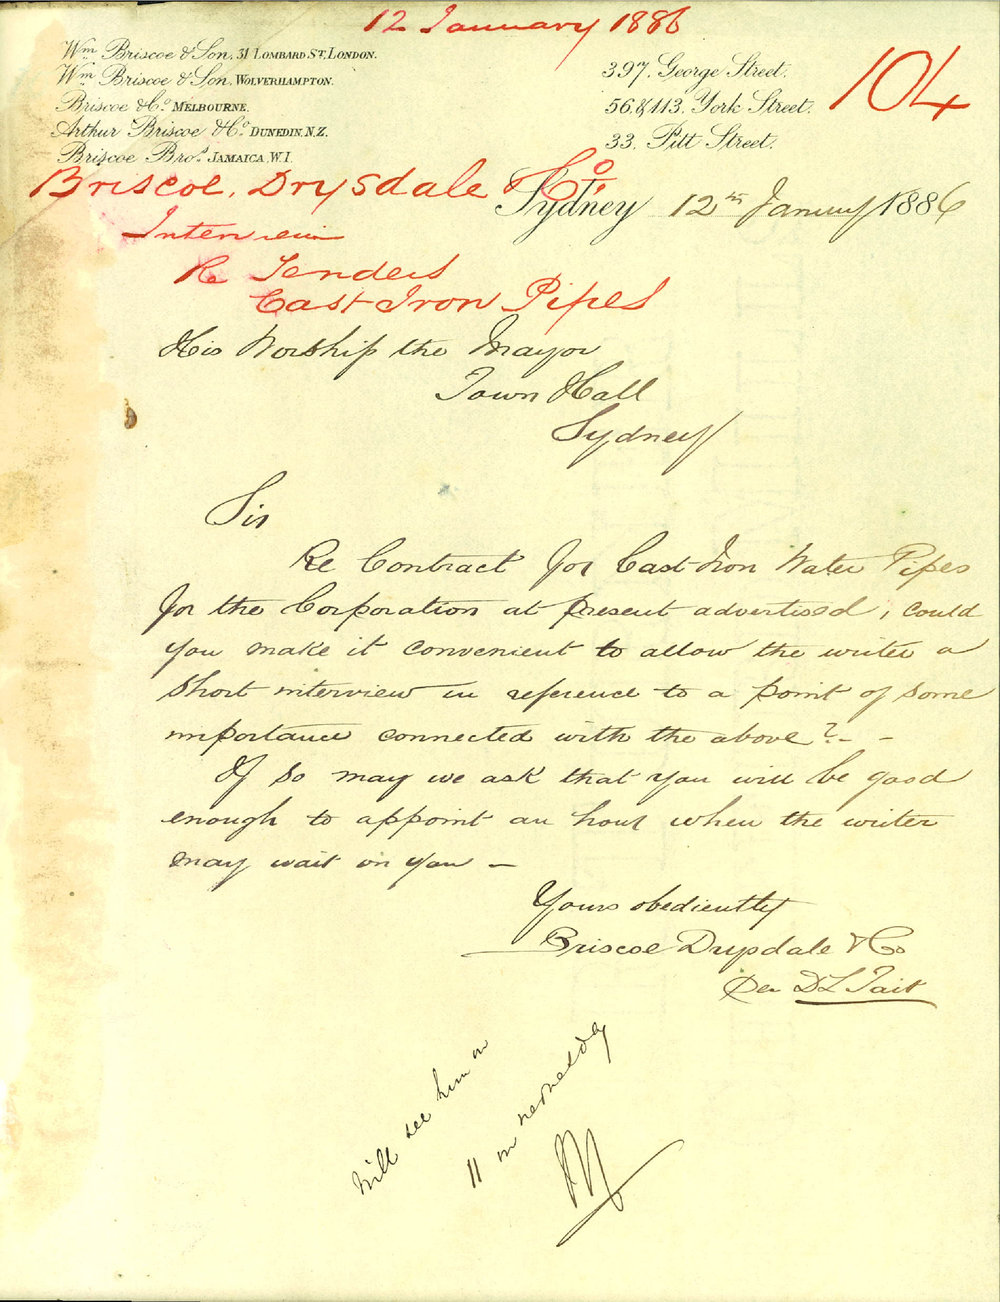 12 January 1886
Wm Briscoe & Son, 31 Lombard St, London.
Wm Briscoe & Son, Wolverhampton.
Briscoe & Co Melbourne.
Arthur Briscoe & Co Dunedin, N.Z.
Briscoe Bros Jamaica, W.I.
397, George Street.
56 & 113, York Street.
33, Pitt Street.
104
Briscoe, Drysdale & Co.
Sydney 12th January 1886
Interview
Re Tenders
Cast Iron Pipes
His Worship the Mayor
Town Hall
Sydney
Sir
Re Contract for Cast Iron Water Pipes
for the Corporation at present advertised, could
you make it convenient to allow the writer a
short interview in reference to a point of some
importance connected with the above? - -
If so may we ask that you will be good
enough to appoint an hour when the writer
may wait on you -
Yours obediently
Briscoe Drysdale & Co
per D L Tait
Will see him on
11 on
M